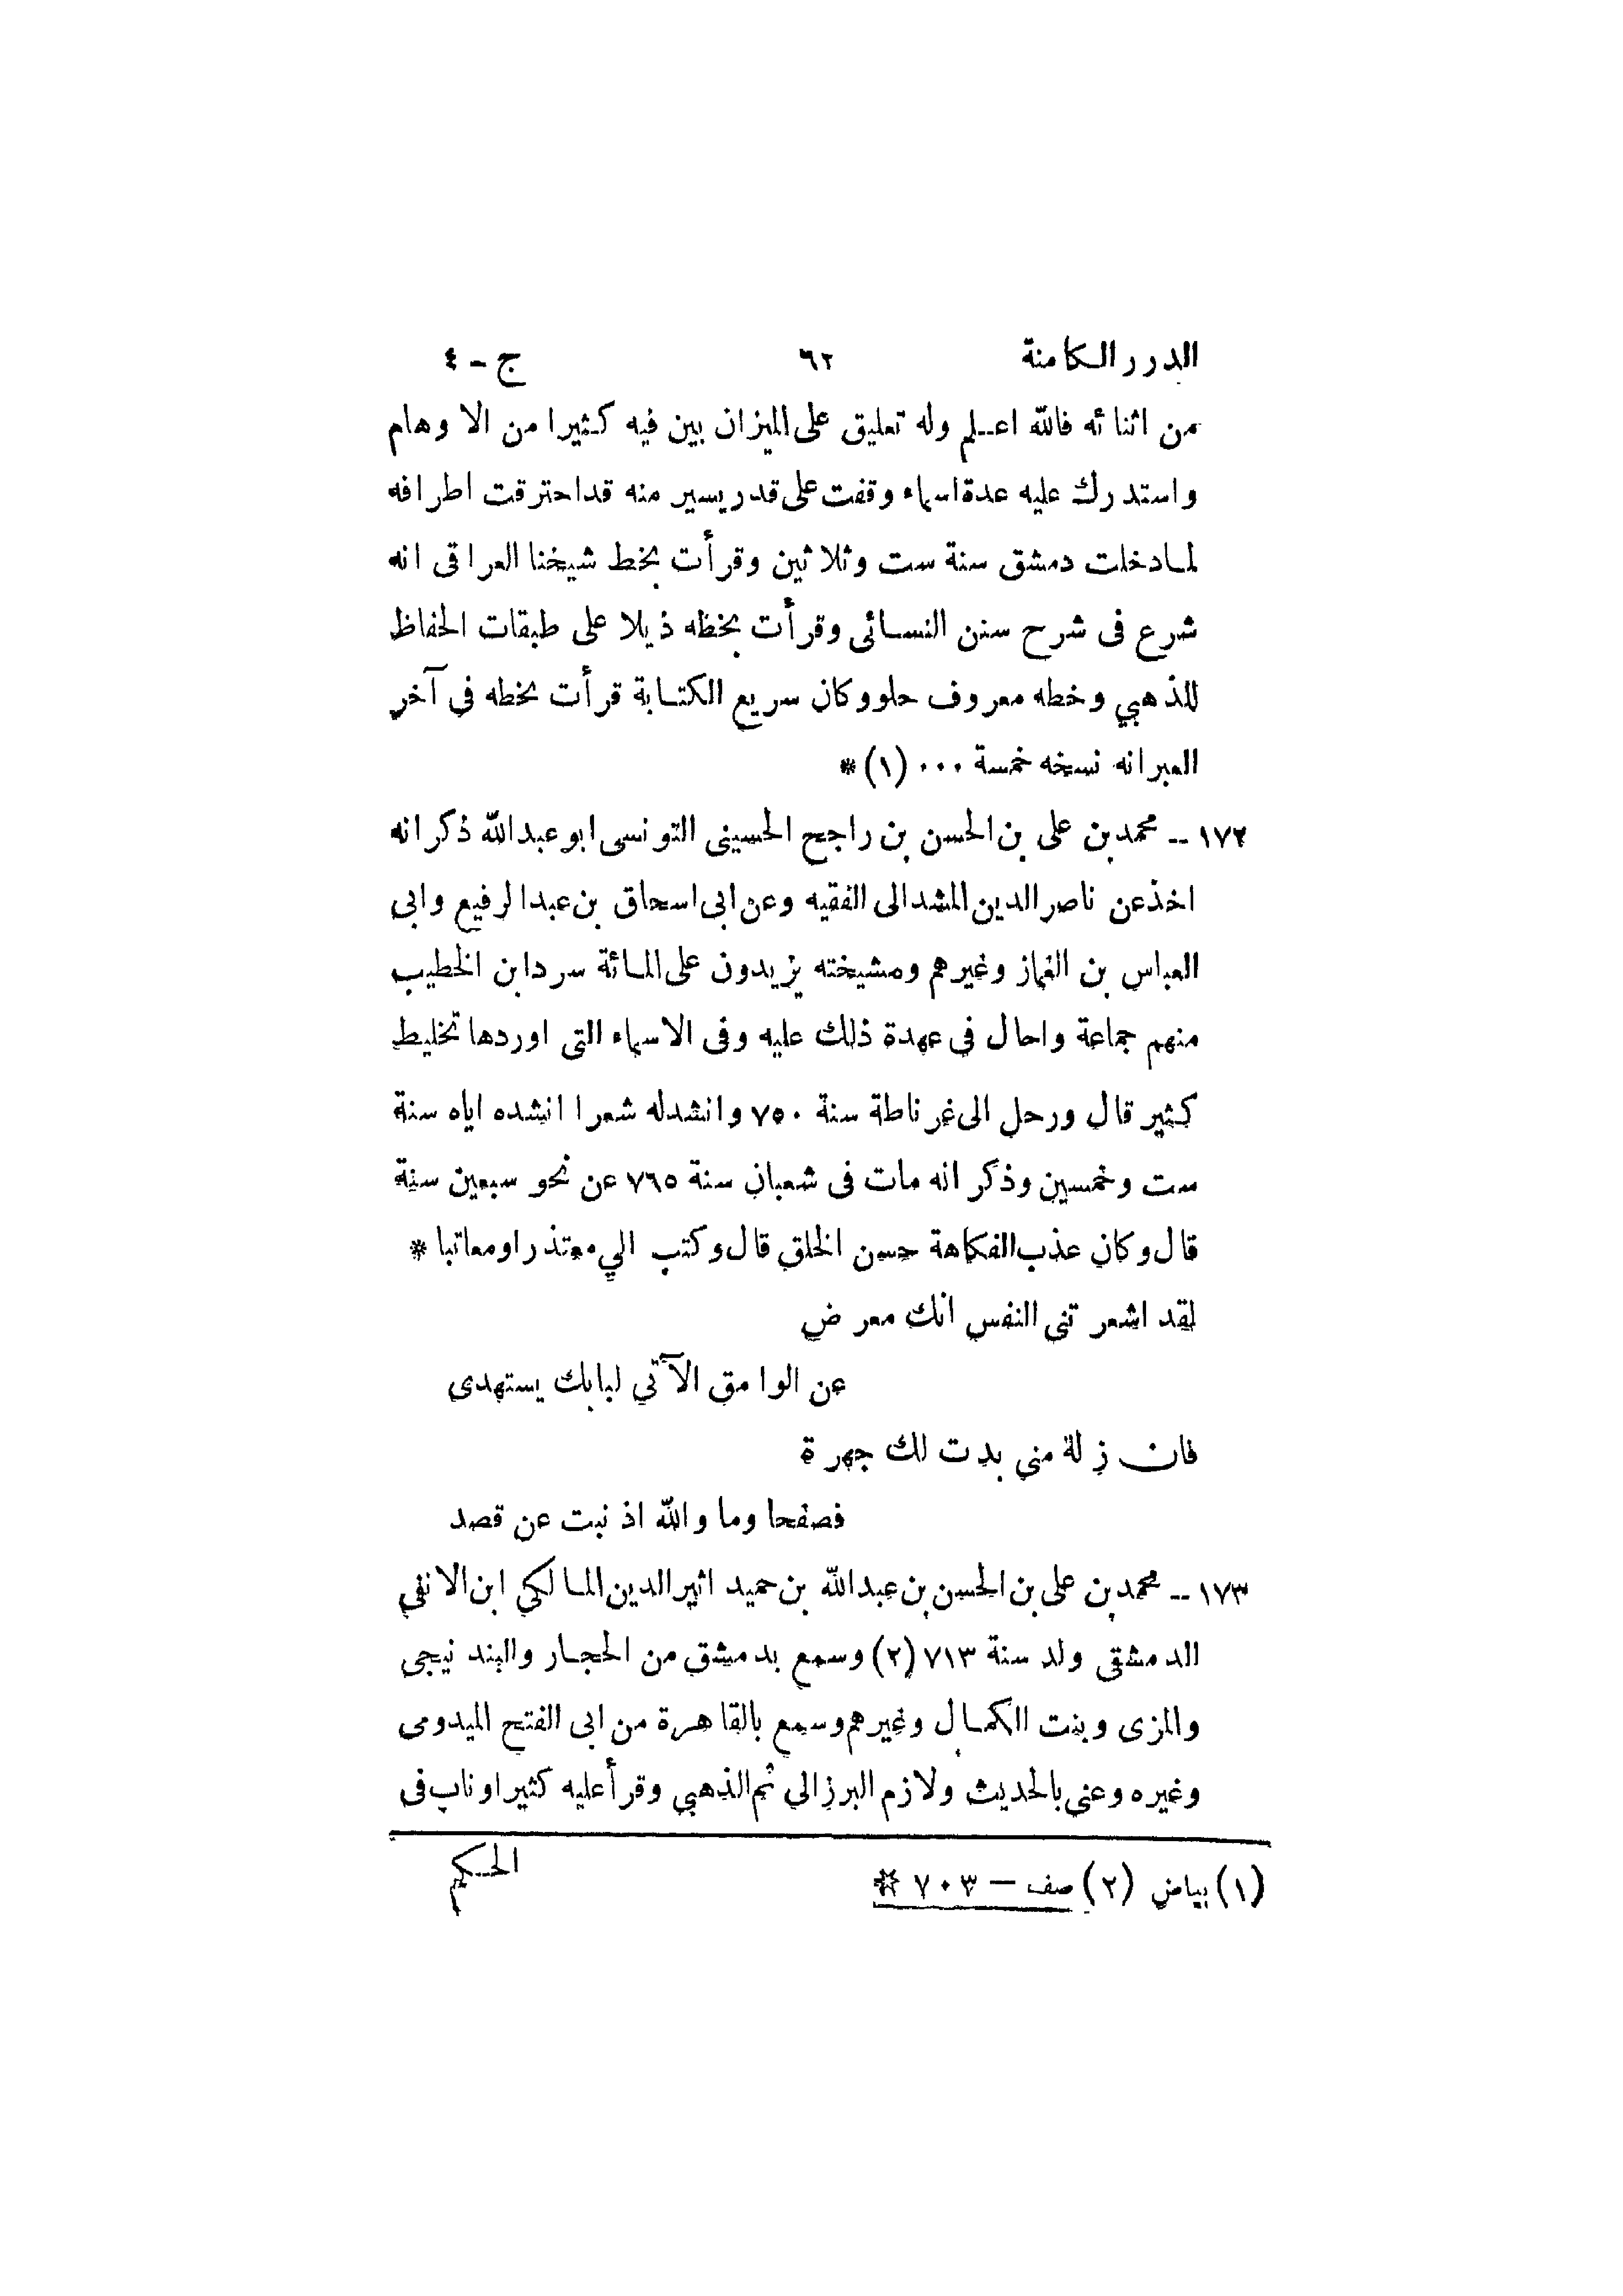 الدرر الكامنة ٦٢ ج - ٤
من اثنائه فالله اعلم وله تعليق على الميزان بين فيه كثيرا من الاوهام
واستدرك عليه عدة اسماء وقفت على قدر يسير منه قد احترقت اطرافه
لما دخلت دمشق سنة ست وثلاثين وقرأت بخط شيخنا العراقى انه
شرع فى شرح سنن النسائى وقرأت بخطه ذيلا على طبقات الحفاظ
للذهبي وخطه معروف حلو وكان سريع الكتابة قرأت بخطه في آخر
العبر انه نسخه خمسة ... (١) *
١٧٢ -- محمد بن على بن الحسن بن راجح الحسينى التونسى ابو عبدالله ذكر انه
اخذ عن ناصر الدين المشدالى الفقيه وعن ابى اسحاق بن عبدالرفيع وابى
العباس بن الغماز وغيرهم ومشيخته يزيدون على المائة سرد ابن الخطيب
منهم جماعة واحال فى عهدة ذلك عليه وفى الاسماء التى اوردها تخليط
كثير قال ورحل الى غرناطة سنة ٧٥٠ وانشد له شعرا انشده اياه سنة
ست وخمسين وذكر انه مات فى شعبان سنة ٧٦٥ عن نحو سبعين سنة
قال وكان عذب الفكاهة حسن الخلق قال وكتب الي معتذرا ومعاتبا *
لقد اشعرتنى النفس انك معرض
عن الوامق الآتي لبابك يستهدى
فان زلة مني بدت لك جهرة
فصفحا وما والله اذنبت عن قصد
١٧٣ -- محمد بن على بن الحسن بن عبدالله بن حميد اثير الدين المالكي ابن الانفي
الدمشقى ولد سنة ٧١٣ (٢) وسمع بدمشق من الحجار والبندنيجى
والمزى وبنت الكمال وغيرهم وسمع بالقاهرة من ابى الفتح الميدومى
وغيره وعنى بالحديث ولازم البرزالي ثم الذهبي وقرأ عليه كثيرا وناب فى
الحكم
(١) بياض (٢) صف — ٧٠٣ *